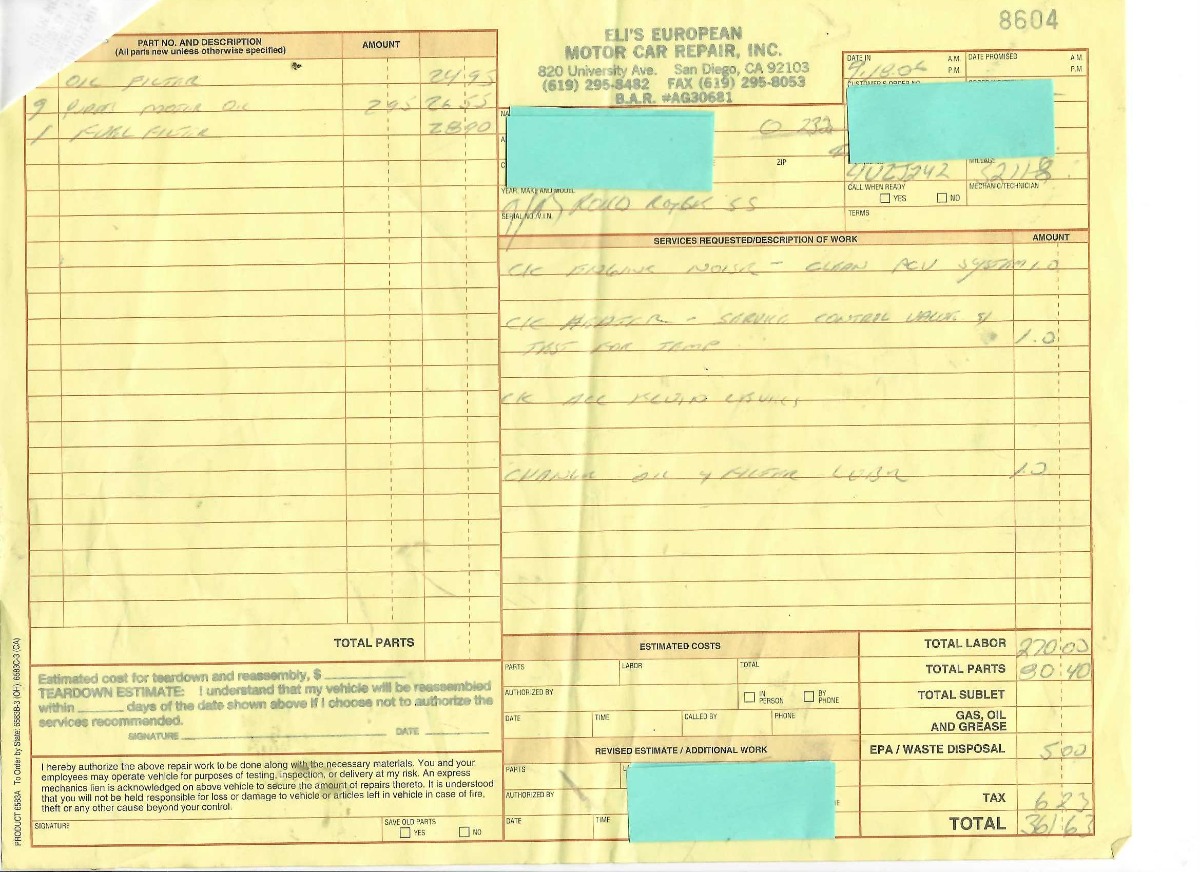 8604
ELI'S EUROPEAN
MOTOR CAR REPAIR, INC.
820 University Ave. San Diego, CA 92103
(619) 295-8482 FAX (619) 295-8053
B.A.R. #AG30681
PART NO. AND DESCRIPTION
(All parts new unless otherwise specified)
AMOUNT
OIL FILTER 2495
9 MOTOR OIL 295 2655
1 FUEL FILTER 2890
TOTAL PARTS
DATE IN A.M. P.M.
DATE PROMISED A.M. P.M.
ZIP
MILEAGE
CALL WHEN READY
YES NO
MECHANIC/TECHNICIAN
TERMS
YEAR, MAKE AND MODEL
SERIAL NO./V.I.N.
SERVICES REQUESTED/DESCRIPTION OF WORK AMOUNT
CK ENGINE NOISE - CLEAN PCV SYSTEM 1.0
CK HEATER - SERVICE CONTROL VALVE &
TEST FOR TEMP 1.0
CK ALL FLUID LEVELS
CHANGE OIL & FILTER LUBE 1.0
ESTIMATED COSTS
PARTS LABOR TOTAL
AUTHORIZED BY
IN PERSON BY PHONE
DATE TIME CALLED BY PHONE
REVISED ESTIMATE / ADDITIONAL WORK
PARTS
AUTHORIZED BY
DATE TIME
TOTAL LABOR 270.00
TOTAL PARTS 80.40
TOTAL SUBLET
GAS, OIL
AND GREASE
EPA / WASTE DISPOSAL 500
TAX 6 23
TOTAL 361.63
Estimated cost for teardown and reassembly, $
TEARDOWN ESTIMATE: I understand that my vehicle will be reassembled
within ______ days of the date shown above if I choose not to authorize the
services recommended.
SIGNATURE DATE
I hereby authorize the above repair work to be done along with the necessary materials. You and your
employees may operate vehicle for purposes of testing, inspection, or delivery at my risk. An express
mechanics lien is acknowledged on above vehicle to secure the amount of repairs thereto. It is understood
that you will not be held responsible for loss or damage to vehicle or articles left in vehicle in case of fire,
theft or any other cause beyond your control.
SIGNATURE
SAVE OLD PARTS
YES NO
PRODUCT 6583A To Order by State: 6583B-3 (OH); 6583C-3 (CA)